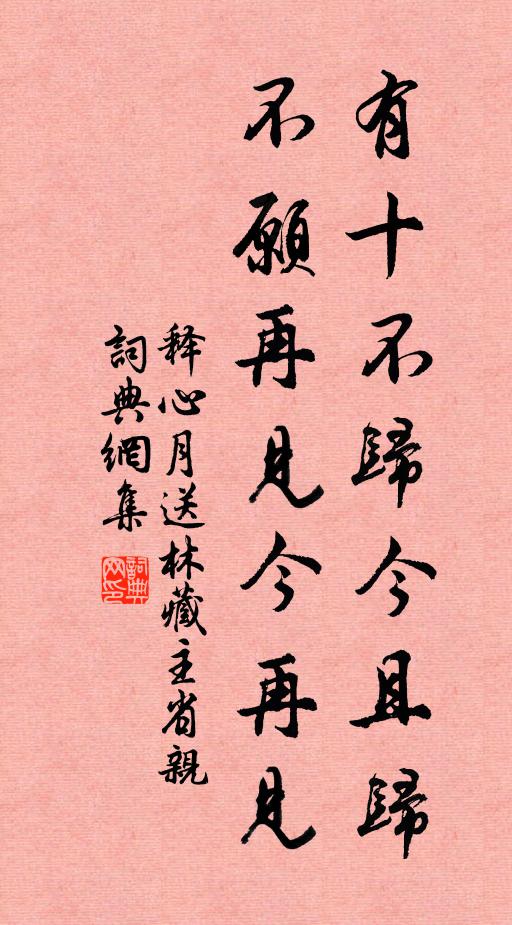 有十不歸今且歸
不願再見今再見
释心月送林藏主省親
詞典網集
詞典网印